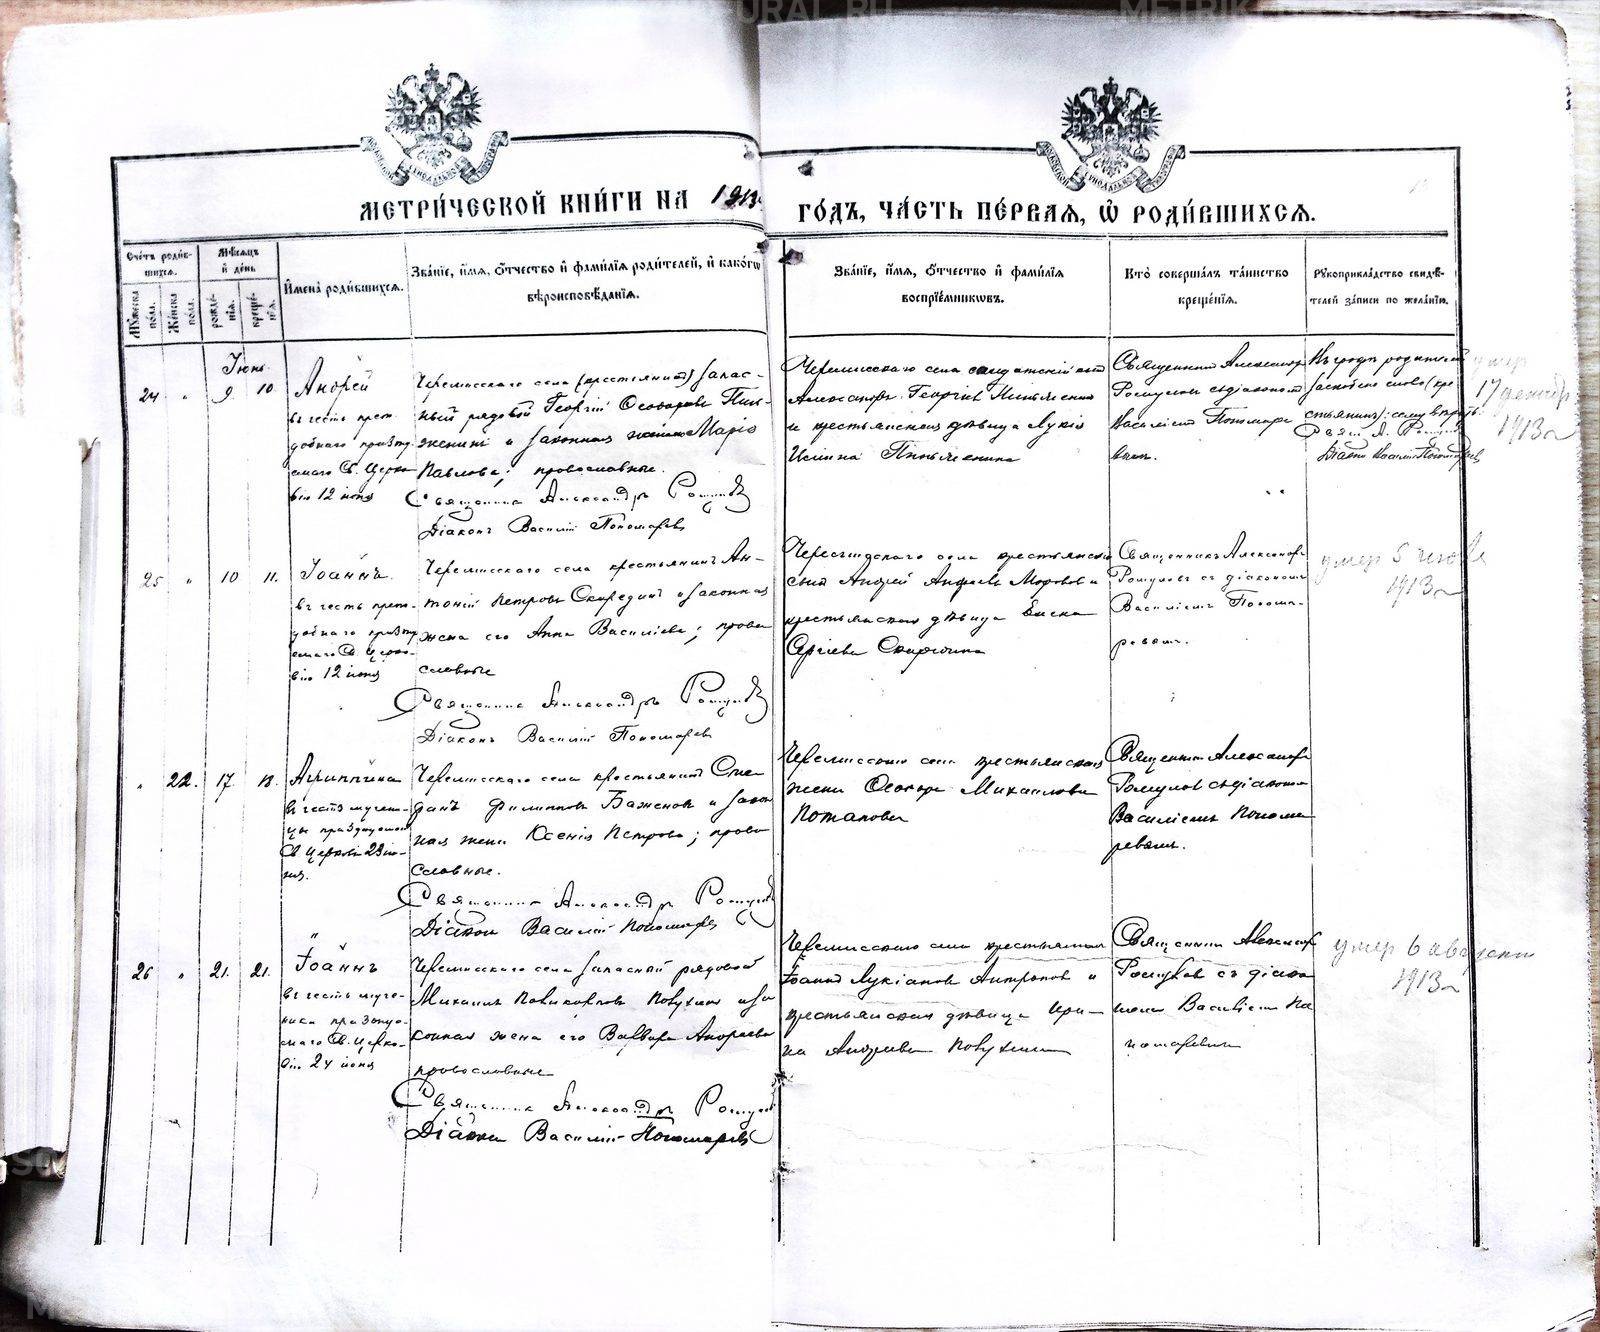 МЕТРИ́ЧЕСКОЙ КНИ́ГИ НА 1913 ГО́ДЪ, ЧА́СТЬ ПЕ́РВАЯ, Ѡ҆ РОДИ́ВШИХСЯ.
Счетъ роди́в-
шихся.
Мѣсяцъ
и҆ де́нь
Мꙋжеска
по́ла.
Же́нска
по́ла.
рожде́-
нїя.
креще́-
нїя.
И҆мена̀ роди́вшихся.
Зва́нїе, и҆́мя, ѻ҆́тчество и҆ фами́лїя роди́телей, и҆ како́гѡ
вѣроисповѣ́данїя.
Зва́нїе, и҆́мя, ѻ҆́тчество и҆ фами́лїя
воспрїе́мникѡвъ.
Кто̀ соверша́лъ та́инство
креще́нїя.
Рꙋкоприкла́дство свидѣ́-
телей за́писи по жела́нїю.
Іюнь
24 " 9 10
Андрей
въ честь преп-
добнаго празд
Св. Церко
вію 12 іюня
Черемисскаго села (крестьянинъ) запас-
ный рядовой Георгій
и законная жена Марія
Павлова; православные.
Священникъ Александръ
Діаконъ Василій Пономаревъ
Черемисскаго села
Александръ Георгіевъ
и крестьянская дѣвица Лукія
Священникъ Александръ
съ діакономъ
Василіемъ Пономаре
вымъ.
Въ графѣ родителей
слово (кре
стьянинъ):
Діаконъ Василій Пономаревъ
умер
17 декабр
1913 г
25 " 10 11.
Іоаннъ.
въ честь преп-
добнаго празд
емаго Св. Церко-
вію 12 іюня
Черемисскаго села крестьянинъ Ан-
тоній Петровъ Скорединъ и законная
жена его Анна Василіева; право
славные
Священникъ Александръ
Діаконъ Василій Пономаревъ
села крестьянскій
сынъ Андрей Морозовъ и
крестьянская дѣвица Елена
Сергіева
Священникъ Александръ
съ діакономъ
Василіемъ Понома-
ревымъ.
умер 5 июля
1913 г
" 22. 17 18.
Агриппина
въ честь мучен-
цы празднуемой
Св Церковію 23 ію-
ня.
Черемисскаго села крестьянинъ Сте
фанъ Филипповъ Баженовъ и закон
ная жена Ксенія Петрова; право
славные.
Священникъ Александръ
Діаконъ Василій Пономаревъ
Черемисскаго села крестьянская
жена Ѳеодора Михайлова
Потапова
Священникъ Александръ
съ діакономъ
Василіемъ Понома
ревымъ.
26 " 21. 21.
Іоаннъ
въ честь
празднуе-
маго Св. Церко-
вію 24 іюня
Черемисскаго села запасный рядовой
Михаилъ Поликарповъ и за
конная жена его Варвара Андреева
православные
Священникъ Александръ
Діаконъ Василій Пономаревъ
Черемисскаго села крестьянинъ
Іоаннъ Лукіановъ Антроповъ и
крестьянская дѣвица Ири-
на Андреева
Священникъ Александръ
съ діако
номъ Василіемъ По
номаревымъ
умер 6 августа
1913 г